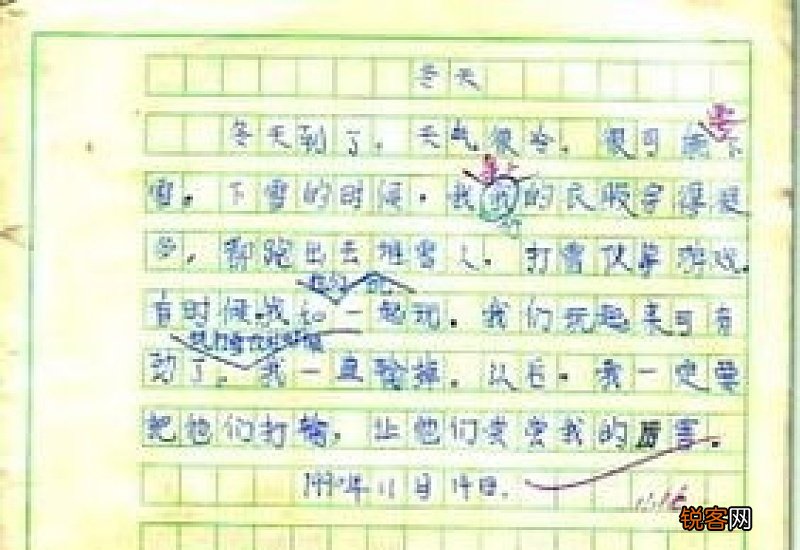 冬天
冬天到了,天气很冷,很可能下
雪。下雪的时候,我我的衣服穿得挺
多,都跑出去堆雪人,打雪仗等游戏.
有时候.我和一起玩。我们玩起来可有
动了。我一直输掉。以后.我一定要
把他们打输,让他们尝尝我的厉害。
11月14日.
锐客网